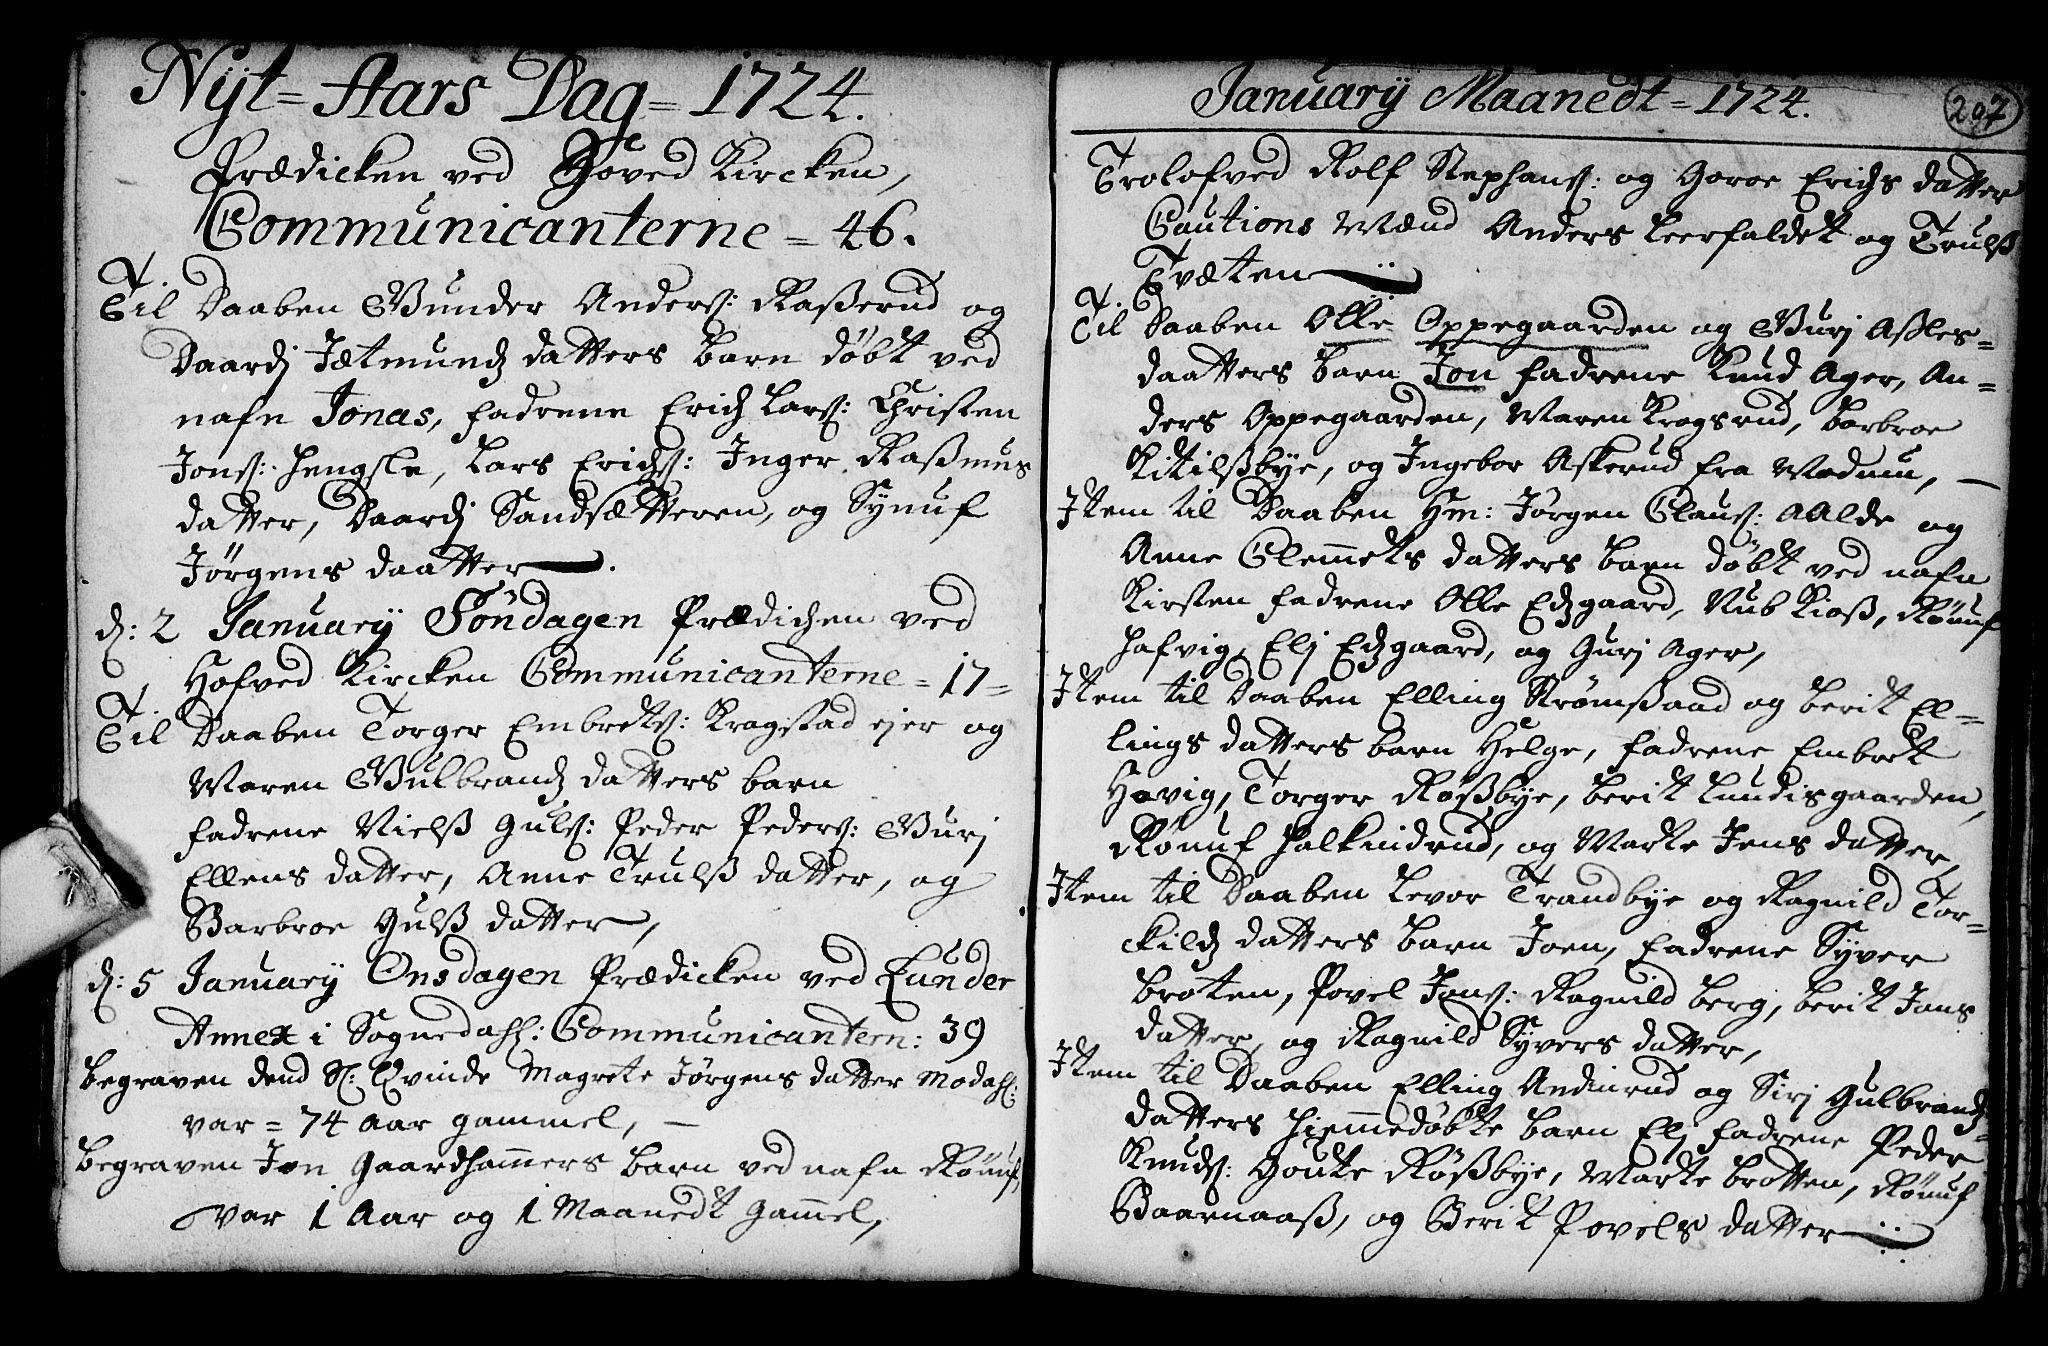 Nÿt=Aars Dag=1724.
Prædicken ved Hoved Kircken,
Communicanterne = 46.
Til Daaben Gunder Anderſ: Raßerud og
Baardj Jætmundʒ datters barn döbt ved
nafn Jonas, fadrene Erich Larſ: Christen
Jonſ: Hengsle, Lars Erichſ: Inger Raßmus
datter, Baardj Sandsætteren, og Synuf
Jörgens daatter.
d: 2 January Söndagen Prædichen ved
Hofved Kircken Communicanterne = 17 =
Til Daaben Torger Embretſ: Kragstad ejer og
Maren Gulbrandʒ datters barn
fadrene Nielß Gulſ: Peder Pederſ: Gurj
Ellens datter, Anne Trulß datter, og
Barbroe Gulß datter,
d: 5 January Onsdagen Prædicken ved Lunder
Annex i Sognedahl: Communicantern: 39
begraven dend Sl: Qvinde Magrete Jörgens datter Modahl:
var = 74 aar gammel,
begraven Jon Gaardhamers barn ved nafn Rönuf,
var 1 Aar og 1 Maanedt gamel,
January Maanedt = 1724.
207
Trolofved Rolf Stephanſ: og Goroe Erichs datter
Cautions Mænd Anders Leerfaldet og Trulß
Tvæten
Til Daaben Olle Oppegaarden og Gurj Aßles=
daatters barn Jon fadrene Knud Ager, An=
ders Oppegaarden, Maren Krogsrud, barbroe
Kitilßbÿe, og Ingebor Askerud fra Modum,
Item til Daaben Hm: Jörgen Clauſ: Aalde og
Anne Clemets datters barn döbt ved nafn
Kirsten fadrene Olle Edʒgaard, Nub Kioß, Rönuf
Hafvig, Elj Edʒgaard, og Gurj Ager,
Item til Daaben Elling Strömßaad og berit El=
lings datters barn Helge, fadrene Embret
Havig, Torger Rößbÿe, berit Lundisgaarden,
Rönuf Halkindrud, og Marte Jens datter,
Item til Daaben Levor Trandbÿe og Ragnild Tor=
ckildʒ datters barn Joen, fadrene Syver
broten, Povel Jonſ: Ragnild berg, berit Jans
datter, og Ragnild Syvers datter,
Item til Daaben Elling Andinrud og Sirj Gulbrandʒ=
datters hiemedöbte barn Elj fadrene Peder
Knudſ: Houke Rößbÿe, Marte brotten, Rönuf
Baarnaaß, og Berit Povels datter